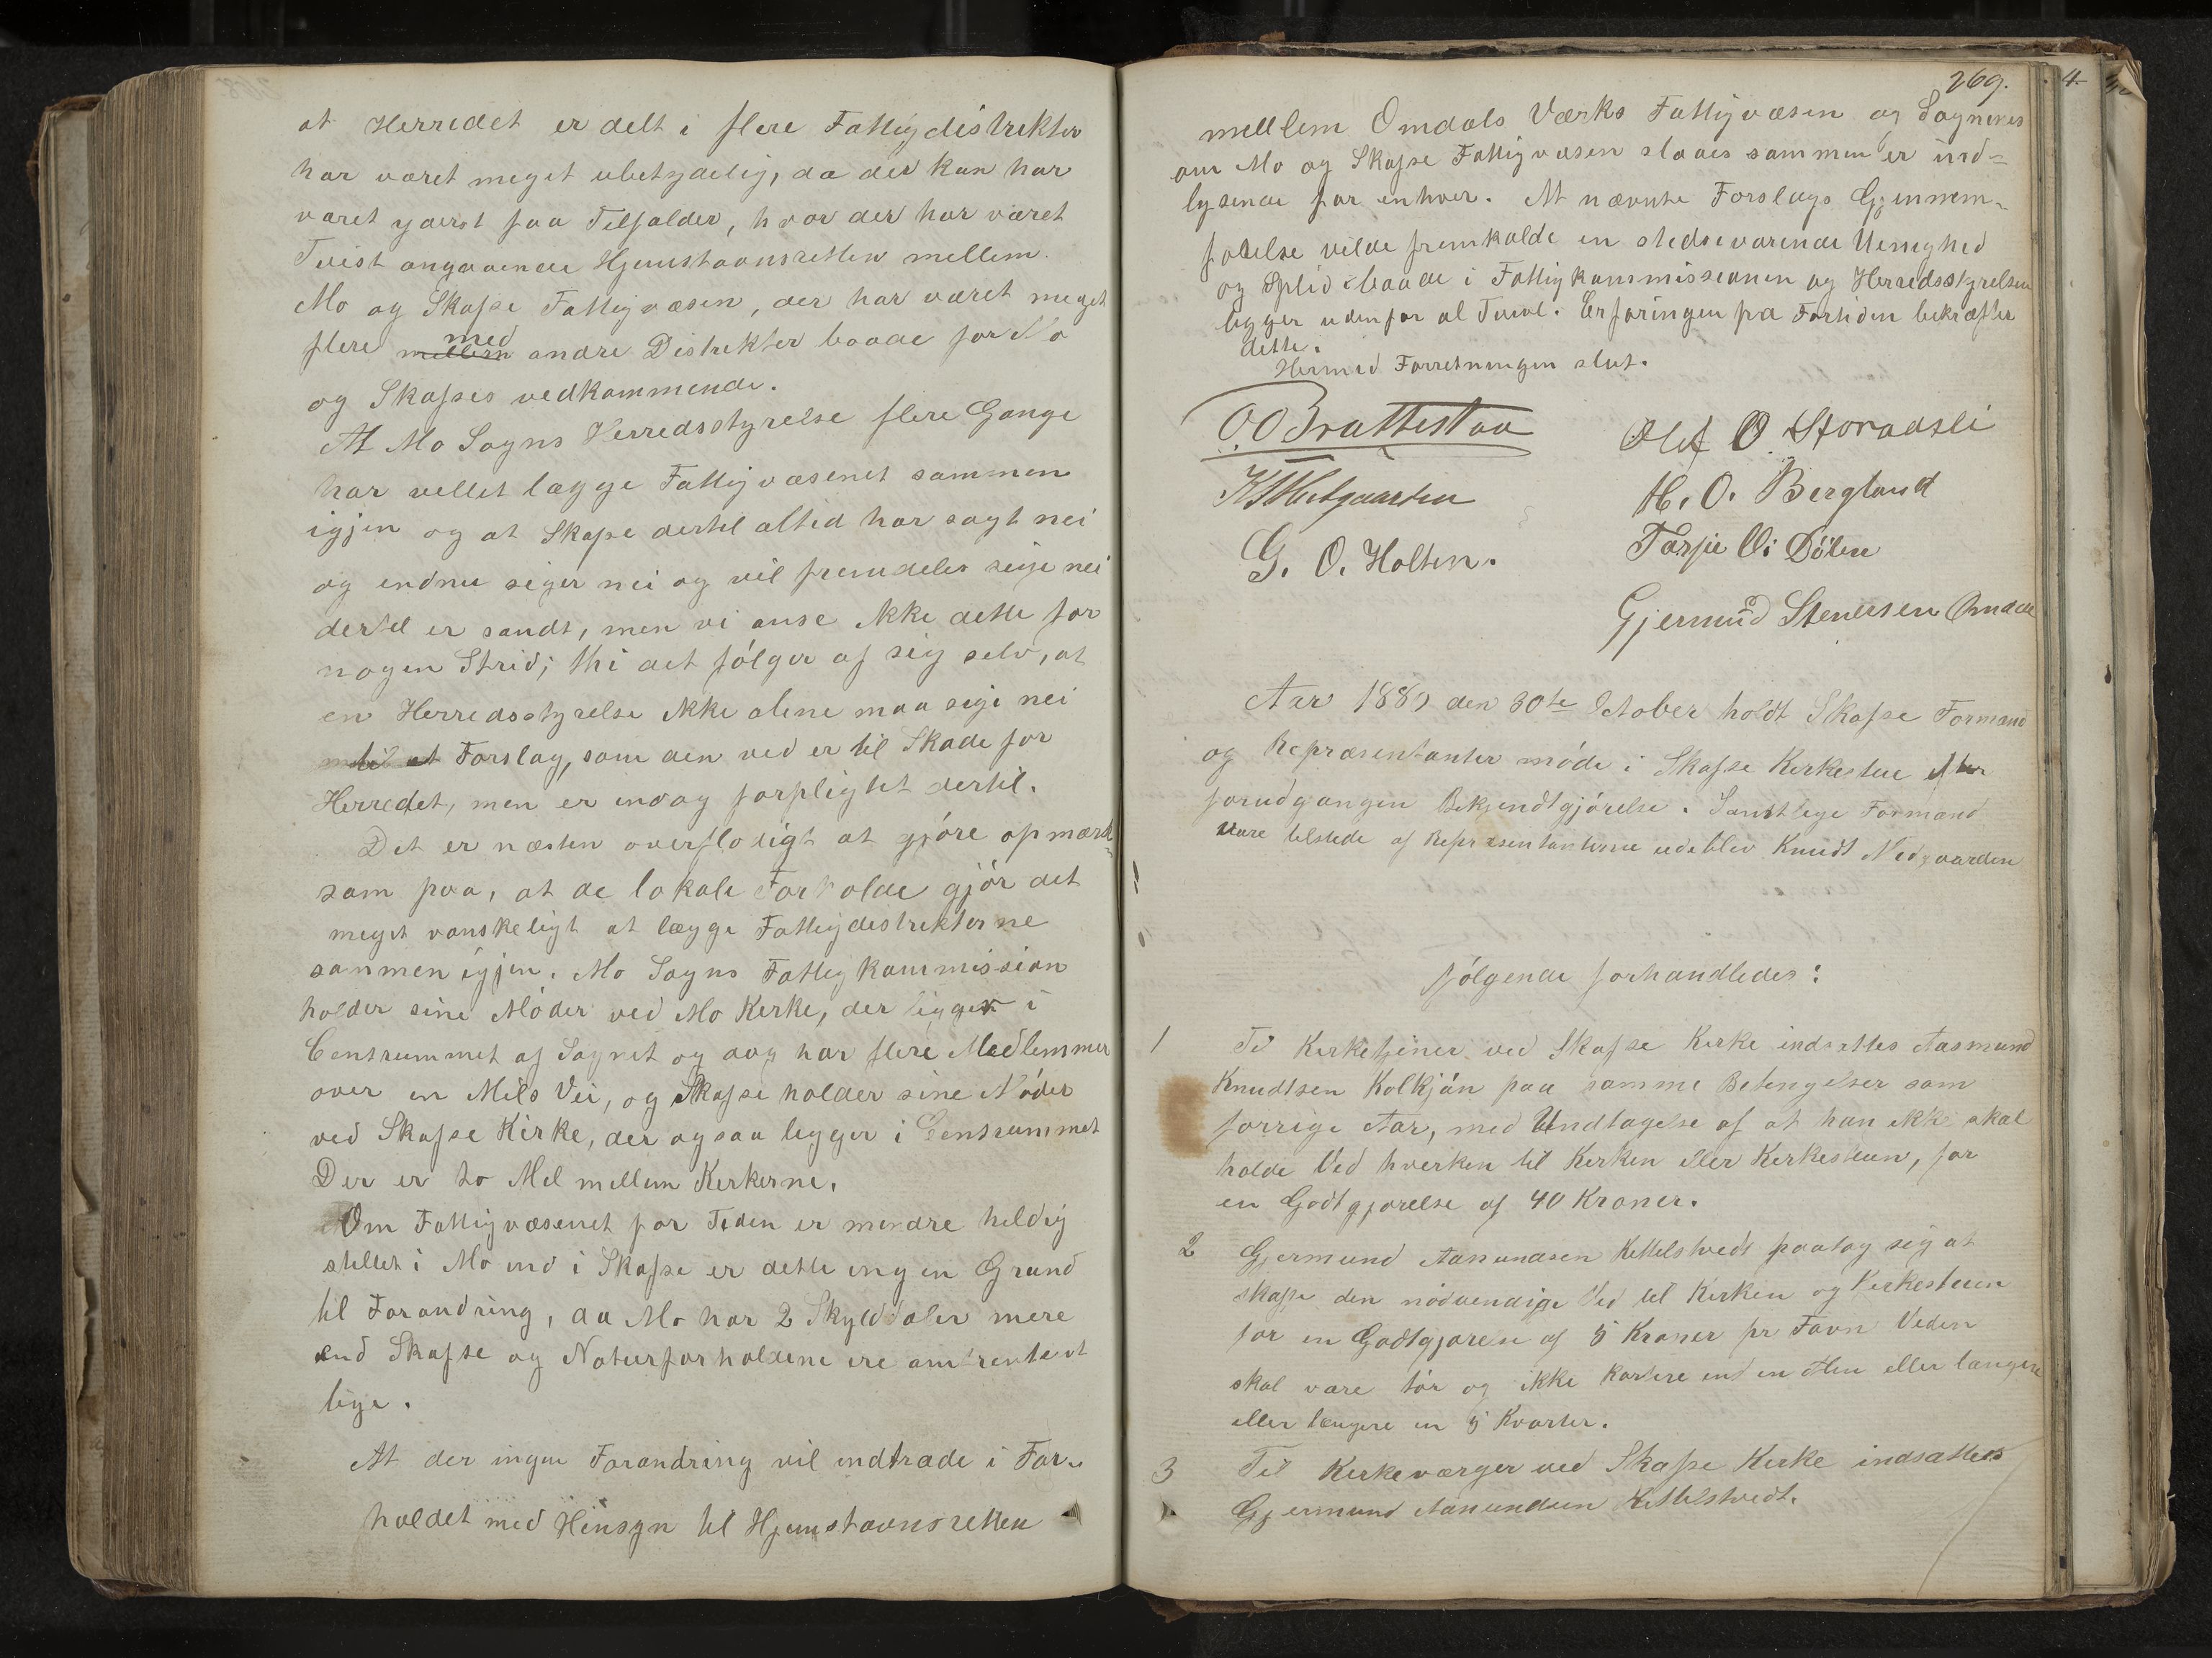 at Herredet er delt i flere Fattigdistrikter
har været meget ubetydelig, da der kun har
været yderst faa Tilfælder, hvor der har været
Tvist angaaende Hjemstavnsretten mellem
Mo og Skafse Fattigvæsen, der har været meget
flere mellem med andre Distrikter baade for Mo
og Skafses vedkommende.
At Mo Sogns Herredsstyrelse flere Gange
har villet lægge Fattigvæsenet sammen
igjen og at Skafse dertil altid har sagt nei
og endnu siger nei og vil fremdeles sige nei
dertil er sandt, men vi anse ikke dette for
nogen Strid; thi det fölger af sig selv, at
en Herredsstyrelse ikke alene maa sige nei
til et Forslag, som den ved er til Skade for
Herredet, men er endog forpligtet dertil.
Det er næsten overflodigt at gjöre opmærk-
sam paa, at de lokale Forholde gjör det
meget vanskeligt at lægge Fattigdistrikterne
sammen igjen. Mo Sogns Fattigkommission
holder sine Möder ved Mo Kirke, der ligger i
Centrummet af Sognet og dog har flere Medlemmer
over en Mils Vei, og Skafse holder sine Möder
ved Skafse Kirke, der ogsaa ligger i Centrummet
Der er to Mil mellem Kirkerne.
Om Fattigvæsenet for Tiden er mindre heldig
stillet i Mo end i Skafse er dette ingen Grund
til Forandring, da Mo har 2 Skylddaler mere
end Skafse og Naturforholdene ere omtrentent
lige.
At der ingen Forandring vil indtræde i For-
holdet med Hensyn til Hjemstavnsretten
269.
mellem Omdals Værks Fattigvæsen og Sognenes
om Mo og Skafse Fattigvæsen slaaes sammen er ind-
lysende for enhver. At nævnte Forslags Gjennem-
förelse vilde fremkalde en stedsevarende Uenighed
og Splid baade i Fattigkommissionen og Herredsstyrelsen
ligger udenfor al Tvivl. Erfaringen fra Fortiden bekræfter
dette.
Hermed Forretningen slut.
O. O Brattestaa
Olef O. Storaasli
K T Midgaarden
H. O. Bergland
G. O. Holten.
Tarjei O Dölen
Gjermund Stenersen Omdal
Aar 1880 den 30te October holdt Skafse Formand
og Repræsentanter möde i Skafse Kirkestue efter
forudgangen Bekjendtgjörelse. Samtlige Formænd
vare tilstede af Repræsentanterne udeblev Knudt Midgaarden
fölgende forhandledes:
1 Til Kirketjener ved Skafse Kirke indsattes Aasmund
Knudtsen Kolkjön paa samme Betingelser som
forrige Aar, med Undtagelse af at han ikke skal
holde Ved hverken til Kirken eller Kirkestuen, for
en Godtgjörelse af 40 Kroner.
2 Gjermund Aanundsen Kittelstvedt paatog sig at
skaffe den nödvendige Ved til Kirken og Kirkestuen
for en Godtgjörelse af 5 Kroner pr Favn Veden
skal være tör og ikke kortere end en Alen eller længere
eller længere en 5 Kvarter.
3 Til Kirkeværger ved Skafse Kirke indsattes
Gjermund Aanundsen Kittelstvedt.